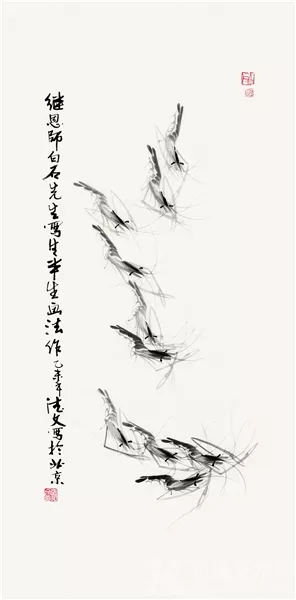 继恩师白石先生写生半生画法作乙未年德文写于北京